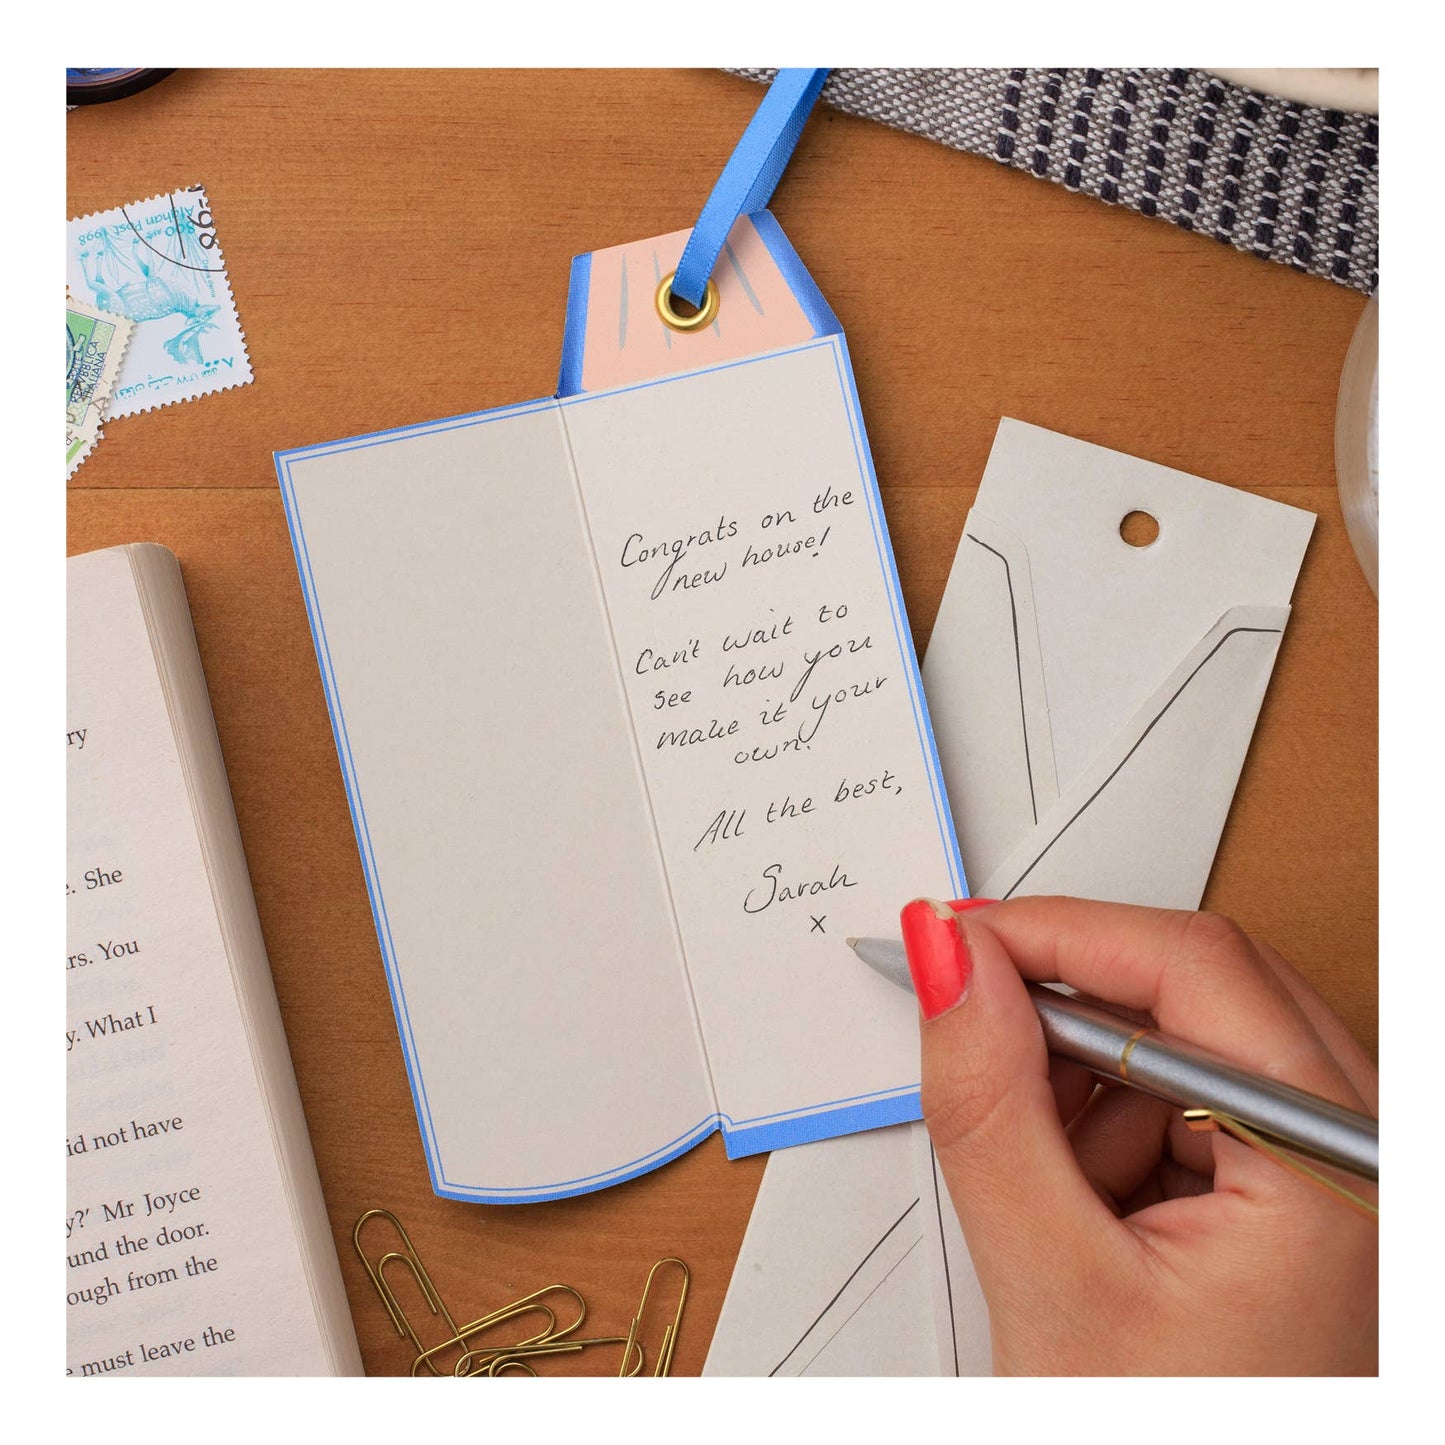 Congrats on the
new house!
Can't wait to
see how you
make it your
own!
All the best,
Sarah
x
Afghan Post 1998
800 AFS
98-
REPVBBLICA
ITALIANA
ry
e. She
rs. You
y. What I
id not have
y?' Mr Joyce
und the door.
ough from the
e must leave the